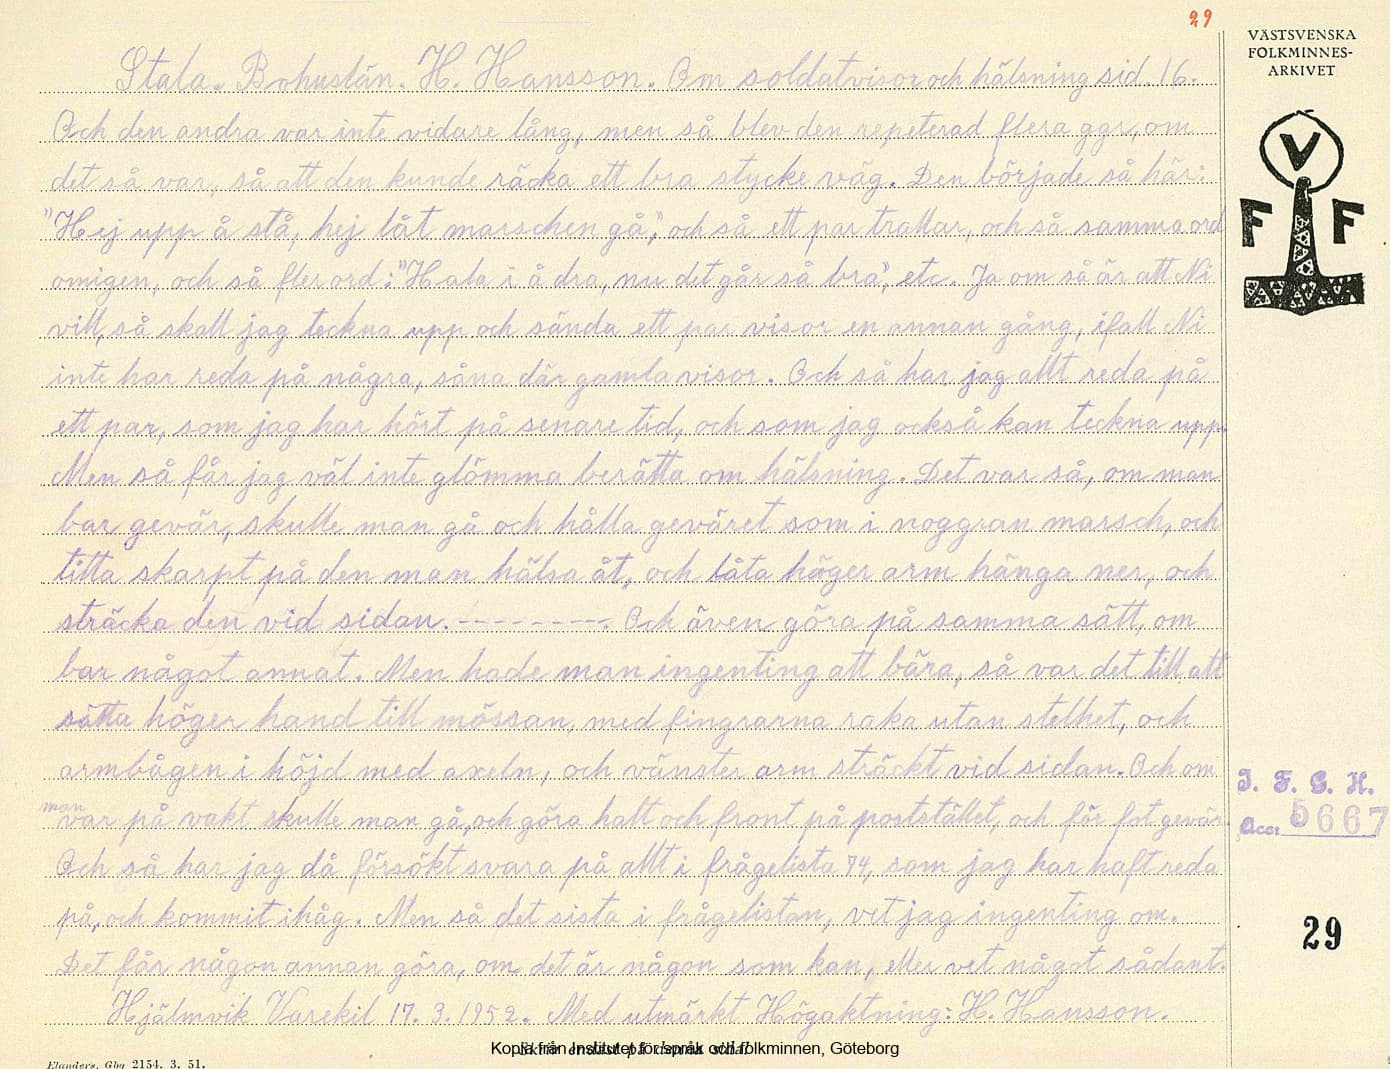 29
VÄSTSVENSKA
FOLKMINNES-
ARKIVET
V
F F
Stala. Bohuslän. H. Hansson. Om soldatvisor och hälsning sid. 16.
Och den andra var inte vidare lång, men så blev den repeterad flera ggr, om
det så var, så att den kunde räcka ett bra stycke väg. Den började så här:
"Hej upp å stå, hej låt marschen gå", och så ett par trallar, och så samma ord
omigen, och så fler ord: "Hala i å dra, nu det går så bra", etc. Ja om så är att Ni
vill, så skall jag teckna upp och sända ett par visor en annan gång, ifall Ni
inte har reda på några, såna där gamla visor. Och så har jag allt reda på
ett par, som jag har hört på senare tid, och som jag också kan teckna upp.
Men så får jag väl inte glömma berätta om hälsning. Det var så, om man
bar gevär, skulle man gå och hålla geväret som i noggran marsch, och
titta skarpt på den man hälsa åt, och låta höger arm hänga ner, och
sträcka den vid sidan. - - - - - - - - -. Och även göra på samma sätt, om
bar något annat. Men hade man ingenting att bära, så var det till att
sätta höger hand till mössan, med fingrarna raka utan stelhet, och
armbågen i höjd med axeln, och vänster arm sträckt vid sidan. Och om
man
var på vakt skulle man gå, och göra halt och front på postställlet, och för fot gevär.
Och så har jag då försökt svara på allt i frågelista 74, som jag har haft reda
på, och kommit ihåg. Men så det sista i frågelistan, vet jag ingenting om.
Det får någon annan göra, om det är någon som kan, eller vet något sådant.
Hjälmvik Varekil 17. 3. 1952. Med utmärkt Högaktning: H. Hansson.
I. F. G. H.
Acc. 5667
29
Kopia från Institutet för språk och folkminnen, Göteborg
Elanders, Gbg 2154. 3. 51.